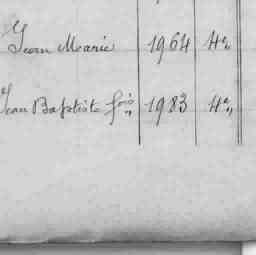 Jean Marie 1964 4e
Jean Baptiste fois 1983 4e „